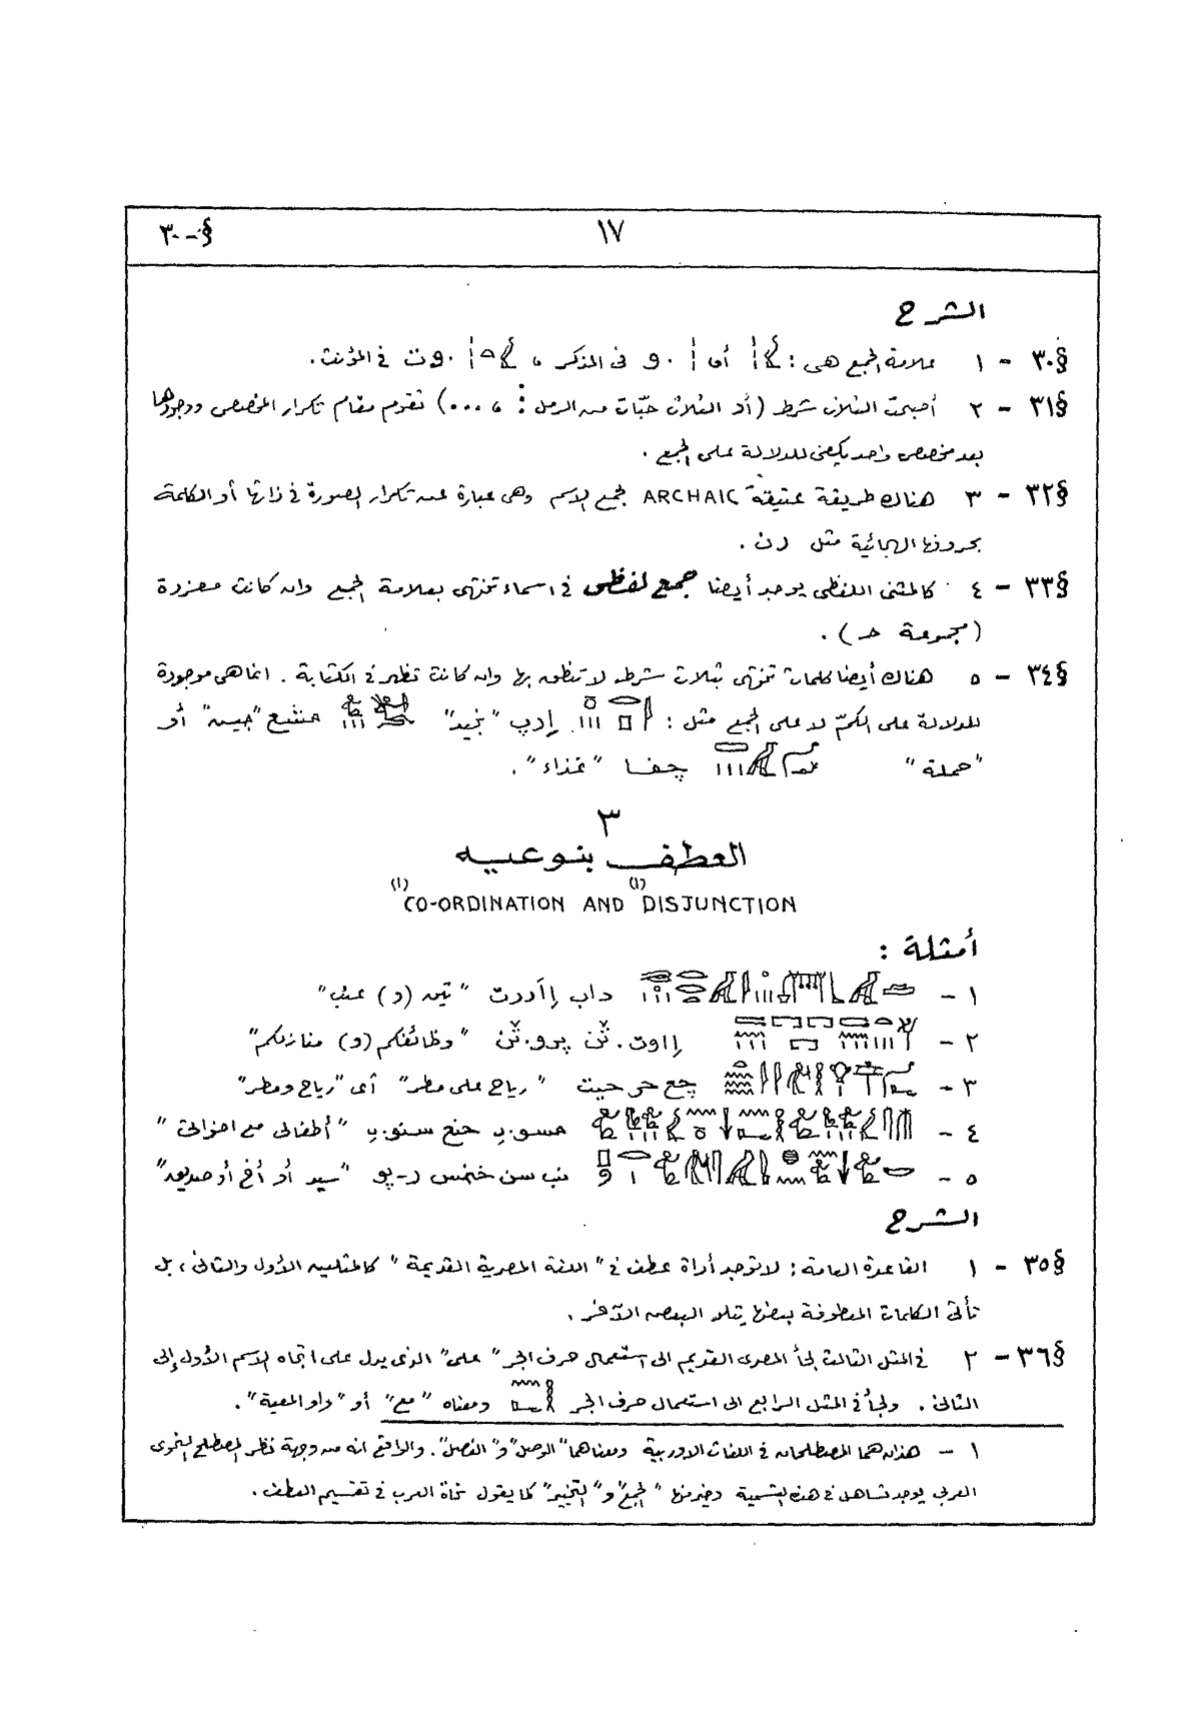 §-٣٠ ١٧
الشرح
§٣٠ - ١ علامة الجمع هى : أو .و فى المذكر ، .وت فى المؤنث .
§٣١ - ٢ أصبحت الثلاث شرط (أو الثلاث حبّات من الرمل : ، ...) تقوم مقام تكرار المخصص ووجودها
بعد مخصص واحد يكفى للدلالة على الجمع .
§٣٢ - ٣ هناك طريقة عتيقة ARCHAIC لجمع الاسم وهى عبارة عن تكرار الصورة فى ذاتها أو الكلمة
بحروفها الهجائية مثل رن .
§٣٣ - ٤ كالمثنى اللفظى يوجد أيضا جمع لفظى فى اسماء تنتهى بعلامة الجمع وان كانت مفردة
(مجموعة حـ) .
§٣٤ - ٥ هناك أيضا كلمات تنتهى بثلاث شرط لا تنطق بها وان كانت تظهر فى الكتابة . انما هى موجودة
للدلالة على الكمّ لا على الجمع مثل : إرب "نبيذ" منشع "جيش" أو
"حملة" چفا "غذاء" .
٣
العطف بنوعيه
(١) CO-ORDINATION AND (١) DISJUNCTION
أمثلة :
١ - داب إاَررت "تين (و) عنب"
٢ - إاوت.ثن پرو.ثن "وظائفكم (و) منازلكم"
٣ - چع حر حيت "رياح على مطر" أى "رياح ومطر"
٤ - مسو.ى حنع سنو.ى "أطفالى مع اخواتى"
٥ - نب سن خنمس ر-پو "سيد أو أخ أو صديق"
الشرح
§٣٥ - ١ القاعدة العامة : لا توجد أداة عطف فى "اللغة المصرية القديمة" كالمثلين الأول والثانى ، بل
تأتى الكلمات المعطوفة بعضها يتلو البعض الآخر .
§٣٦ - ٢ فى المثل الثالث لجأ المصرى القديم الى استعمال حرف الجر "على" الذى يدل على اتجاه الاسم الأول إلى
الثانى . ولجأ فى المثل الرابع الى استعمال حرف الجر ومعناه "مع" أو "واو المعية" .
١ - هذان هما المصطلحان فى اللغات الاوربية ومعناهما "الوصل" و "الفصل" . والواقع انه من وجهة نظر المصطلح النحوى
العربى يوجد تساهل فى هذه التسمية وخير منها "الجمع" و "التخيير" كما يقول نحاة العرب فى تقسيم العطف .